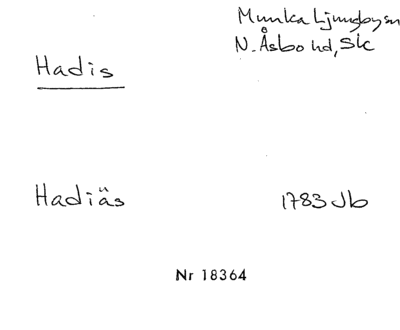 Munka Ljungby sn
N. Åsbo hd, Sk
Hadis
Hadiäs 1783 Jb
Nr 18364